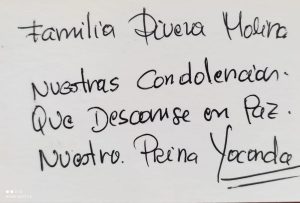 Familia Rivera Molina
Nuestras Condolencias.
Que Descanse en Paz.
Nuestro. Prima Yoconda